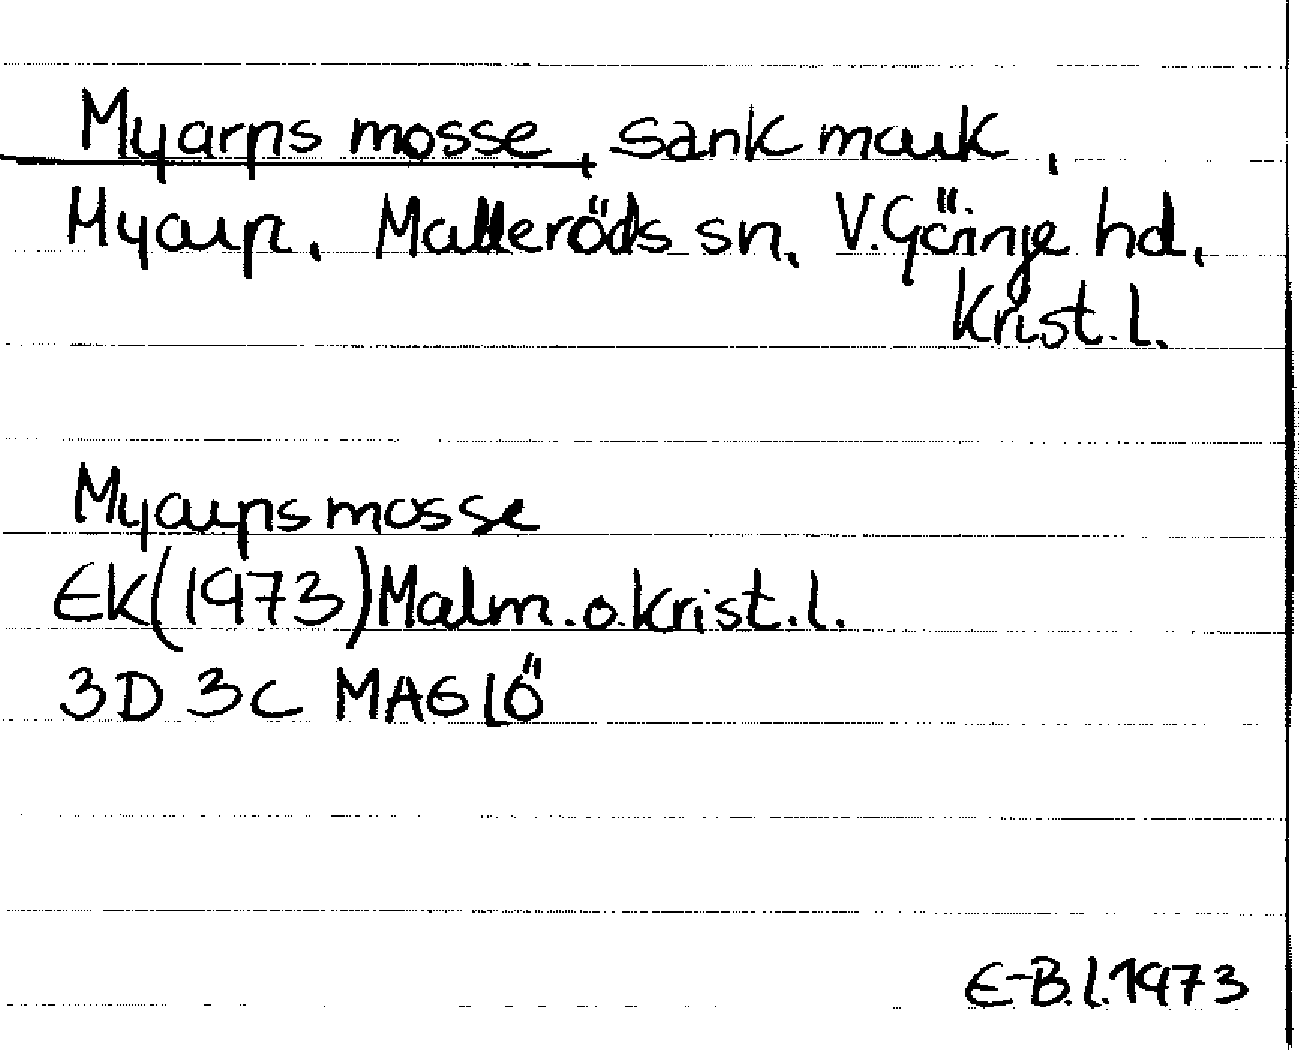 Myarps mosse, sank mark,
Myarp, Matteröds sn, V.Göinge hd,
Krist.l.
Myarps mosse
EK(1973)Malm.o.Krist.l.
3D 3C MAGLÖ
E-B.L.1973